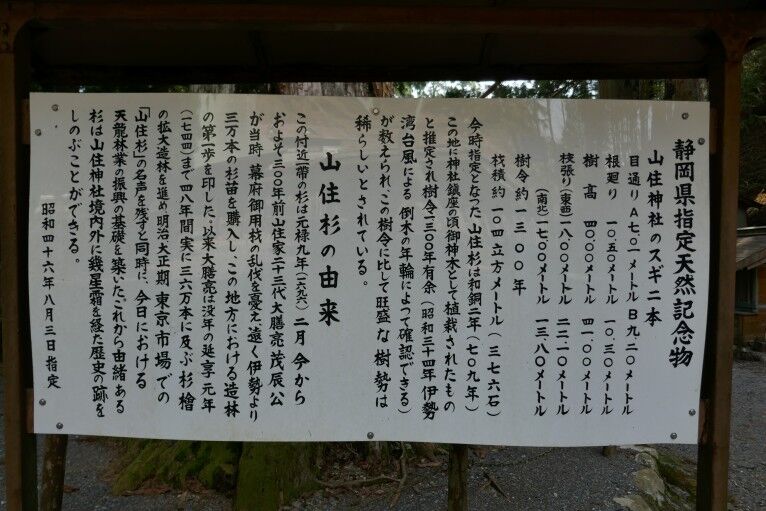 静岡県指定天然記念物
山住神社のスギ二本
目通り A七.〇一メートル B九.二〇メートル
根廻り 一〇.五〇メートル 一〇.三〇メートル
樹高 四〇.〇〇メートル 四一.〇〇メートル
枝張り(東西)一八.〇〇メートル 二二.二〇メートル
(南北)一七.〇〇メートル 一三.八〇メートル
樹令約一三〇〇年
材積約一〇四立方メートル(三七六石)
今時指定となった山住杉は和銅二年(七〇九年)
この地に神社鎮座の頃御神木として植栽されたもの
と推定され樹令一三〇〇年有余(昭和三十四年伊勢
湾台風による倒木の年輪によって確認できる)
が数えられ、この樹令に比して旺盛な樹勢は
稀らしいとされている。
山住杉の由来
この付近一帯の杉は元禄九年(一六九六)二月今から
およそ三〇〇年前山住家二十三代大膳亮茂辰公
が当時幕府御用材の乱伐を憂え遠く伊勢より
三万本の杉苗を購入し、この地方における造林
の第一歩を印した、以来大膳亮は没年の延享元年
(一七四四)まで四八年間実に三六万本に及ぶ杉檜
の拡大造林を進め明治大正期東京市場での
「山住杉」の名声を残すと同時に、今日における
天龍林業の振興の基礎を築いたこれから由緒ある
杉は山住神社境内外に幾星霜を経た歴史の跡を
しのぶことができる。
昭和四十六年八月三日指定